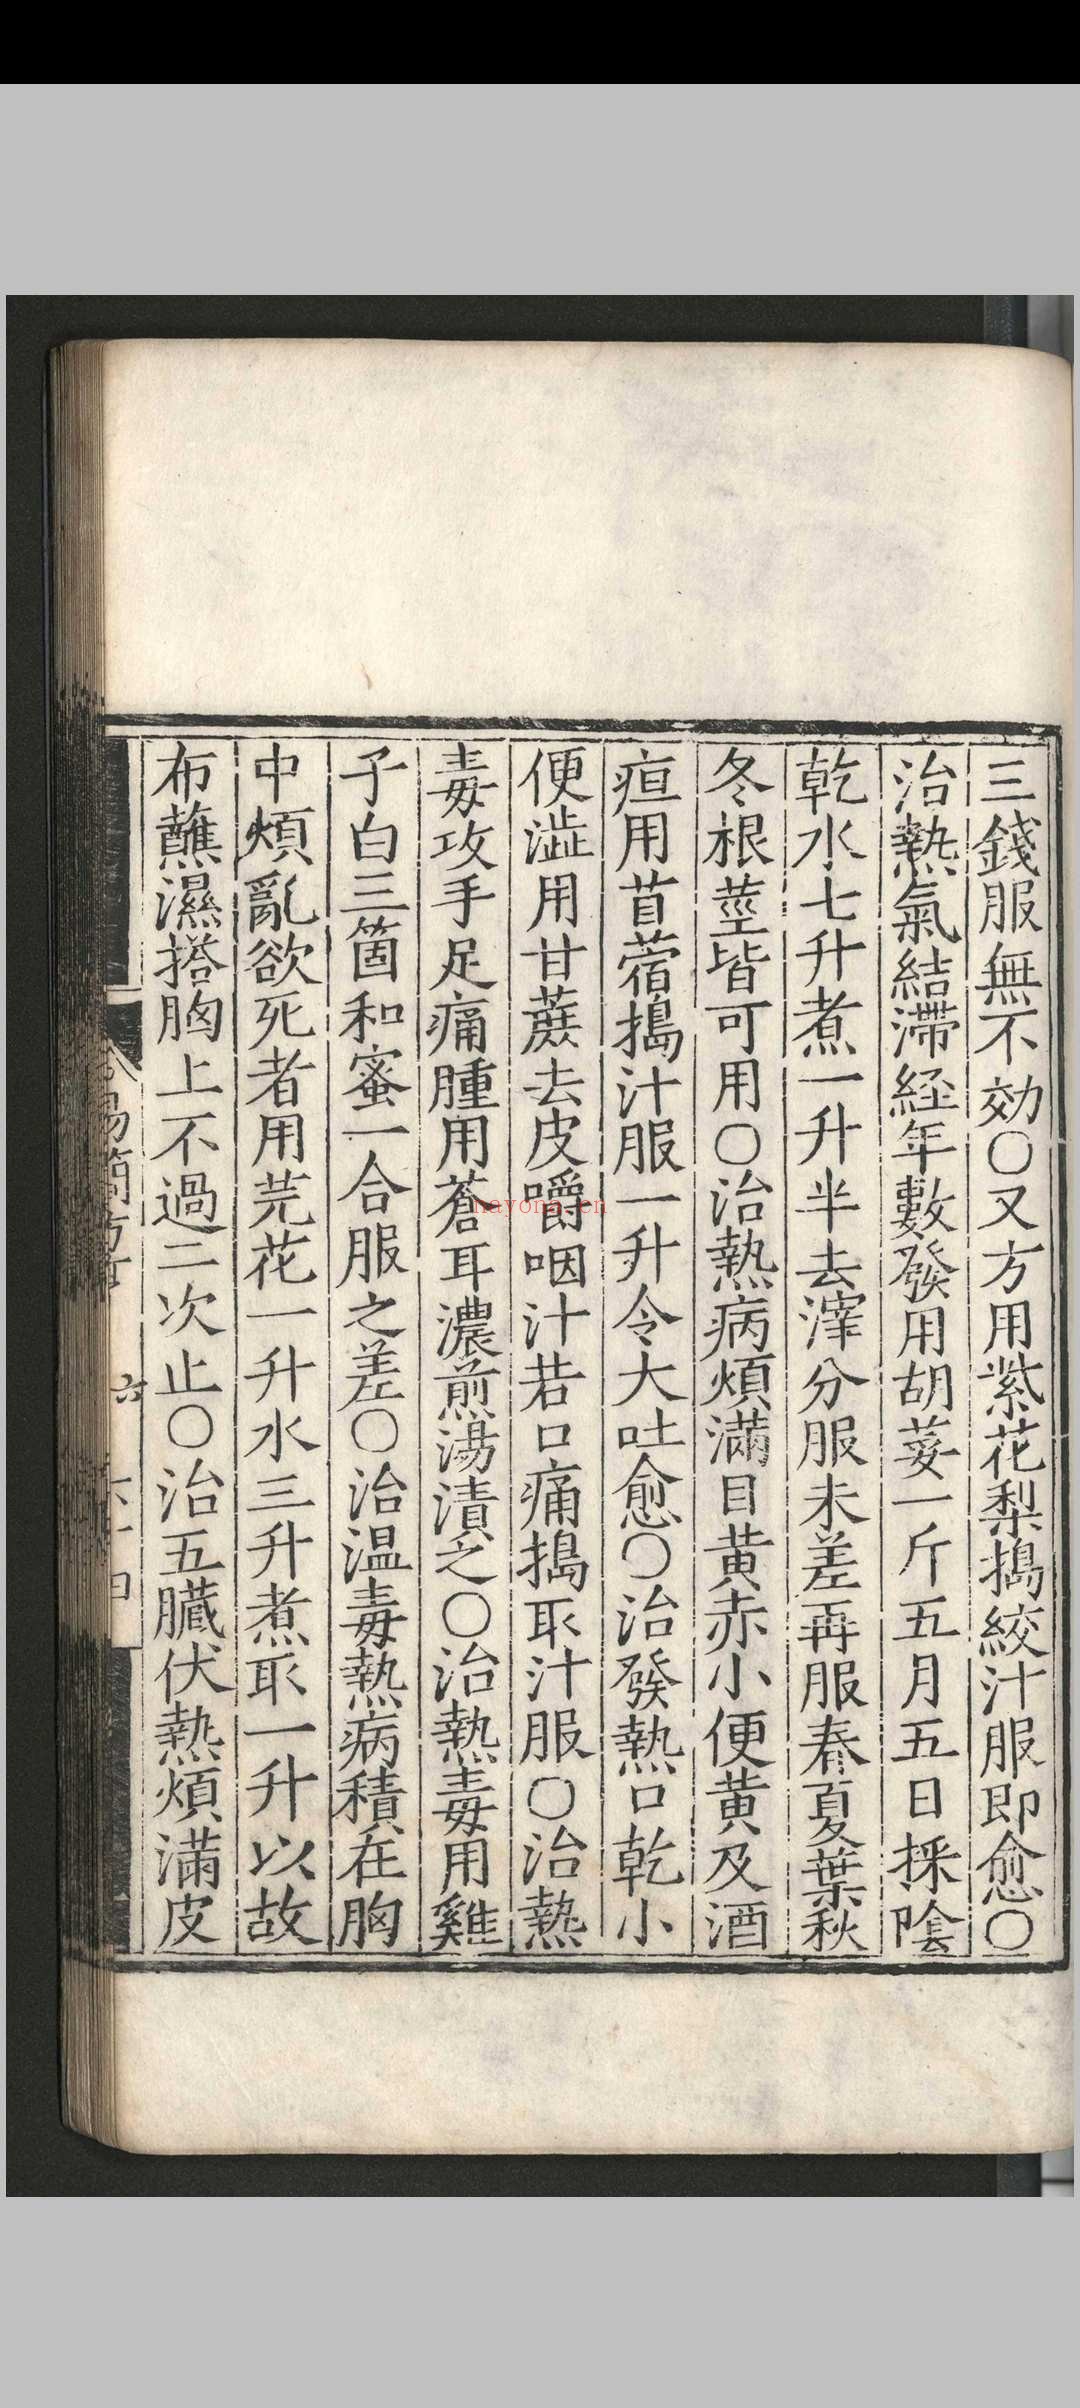 三錢服無不効〇又方用紫花梨搗絞汁服即愈〇
治熱氣結滯経年數發用胡荽一斤五月五日採陰
乾水七升煮一升半去滓分服未差再服春夏葉秋
冬根莖皆可用〇治熱病煩滿目黄赤小便黄及酒
疸用苜蓿搗汁服一升令大吐愈〇治發熱口乾小
便澁用甘蔗去皮嚼咽汁若口痛搗取汁服〇治熱
毒攻手足痛腫用蒼耳濃煎湯漬之〇治熱毒用雞
子白三箇和蜜一合服之差〇治温毒熱病積在胸
中煩亂欲死者用芫花一升水三升煮取一升以故
布蘸濕搭胸上不過二次止〇治五臟伏熱煩滿皮
易簡方
六
六十四
nayona.cn